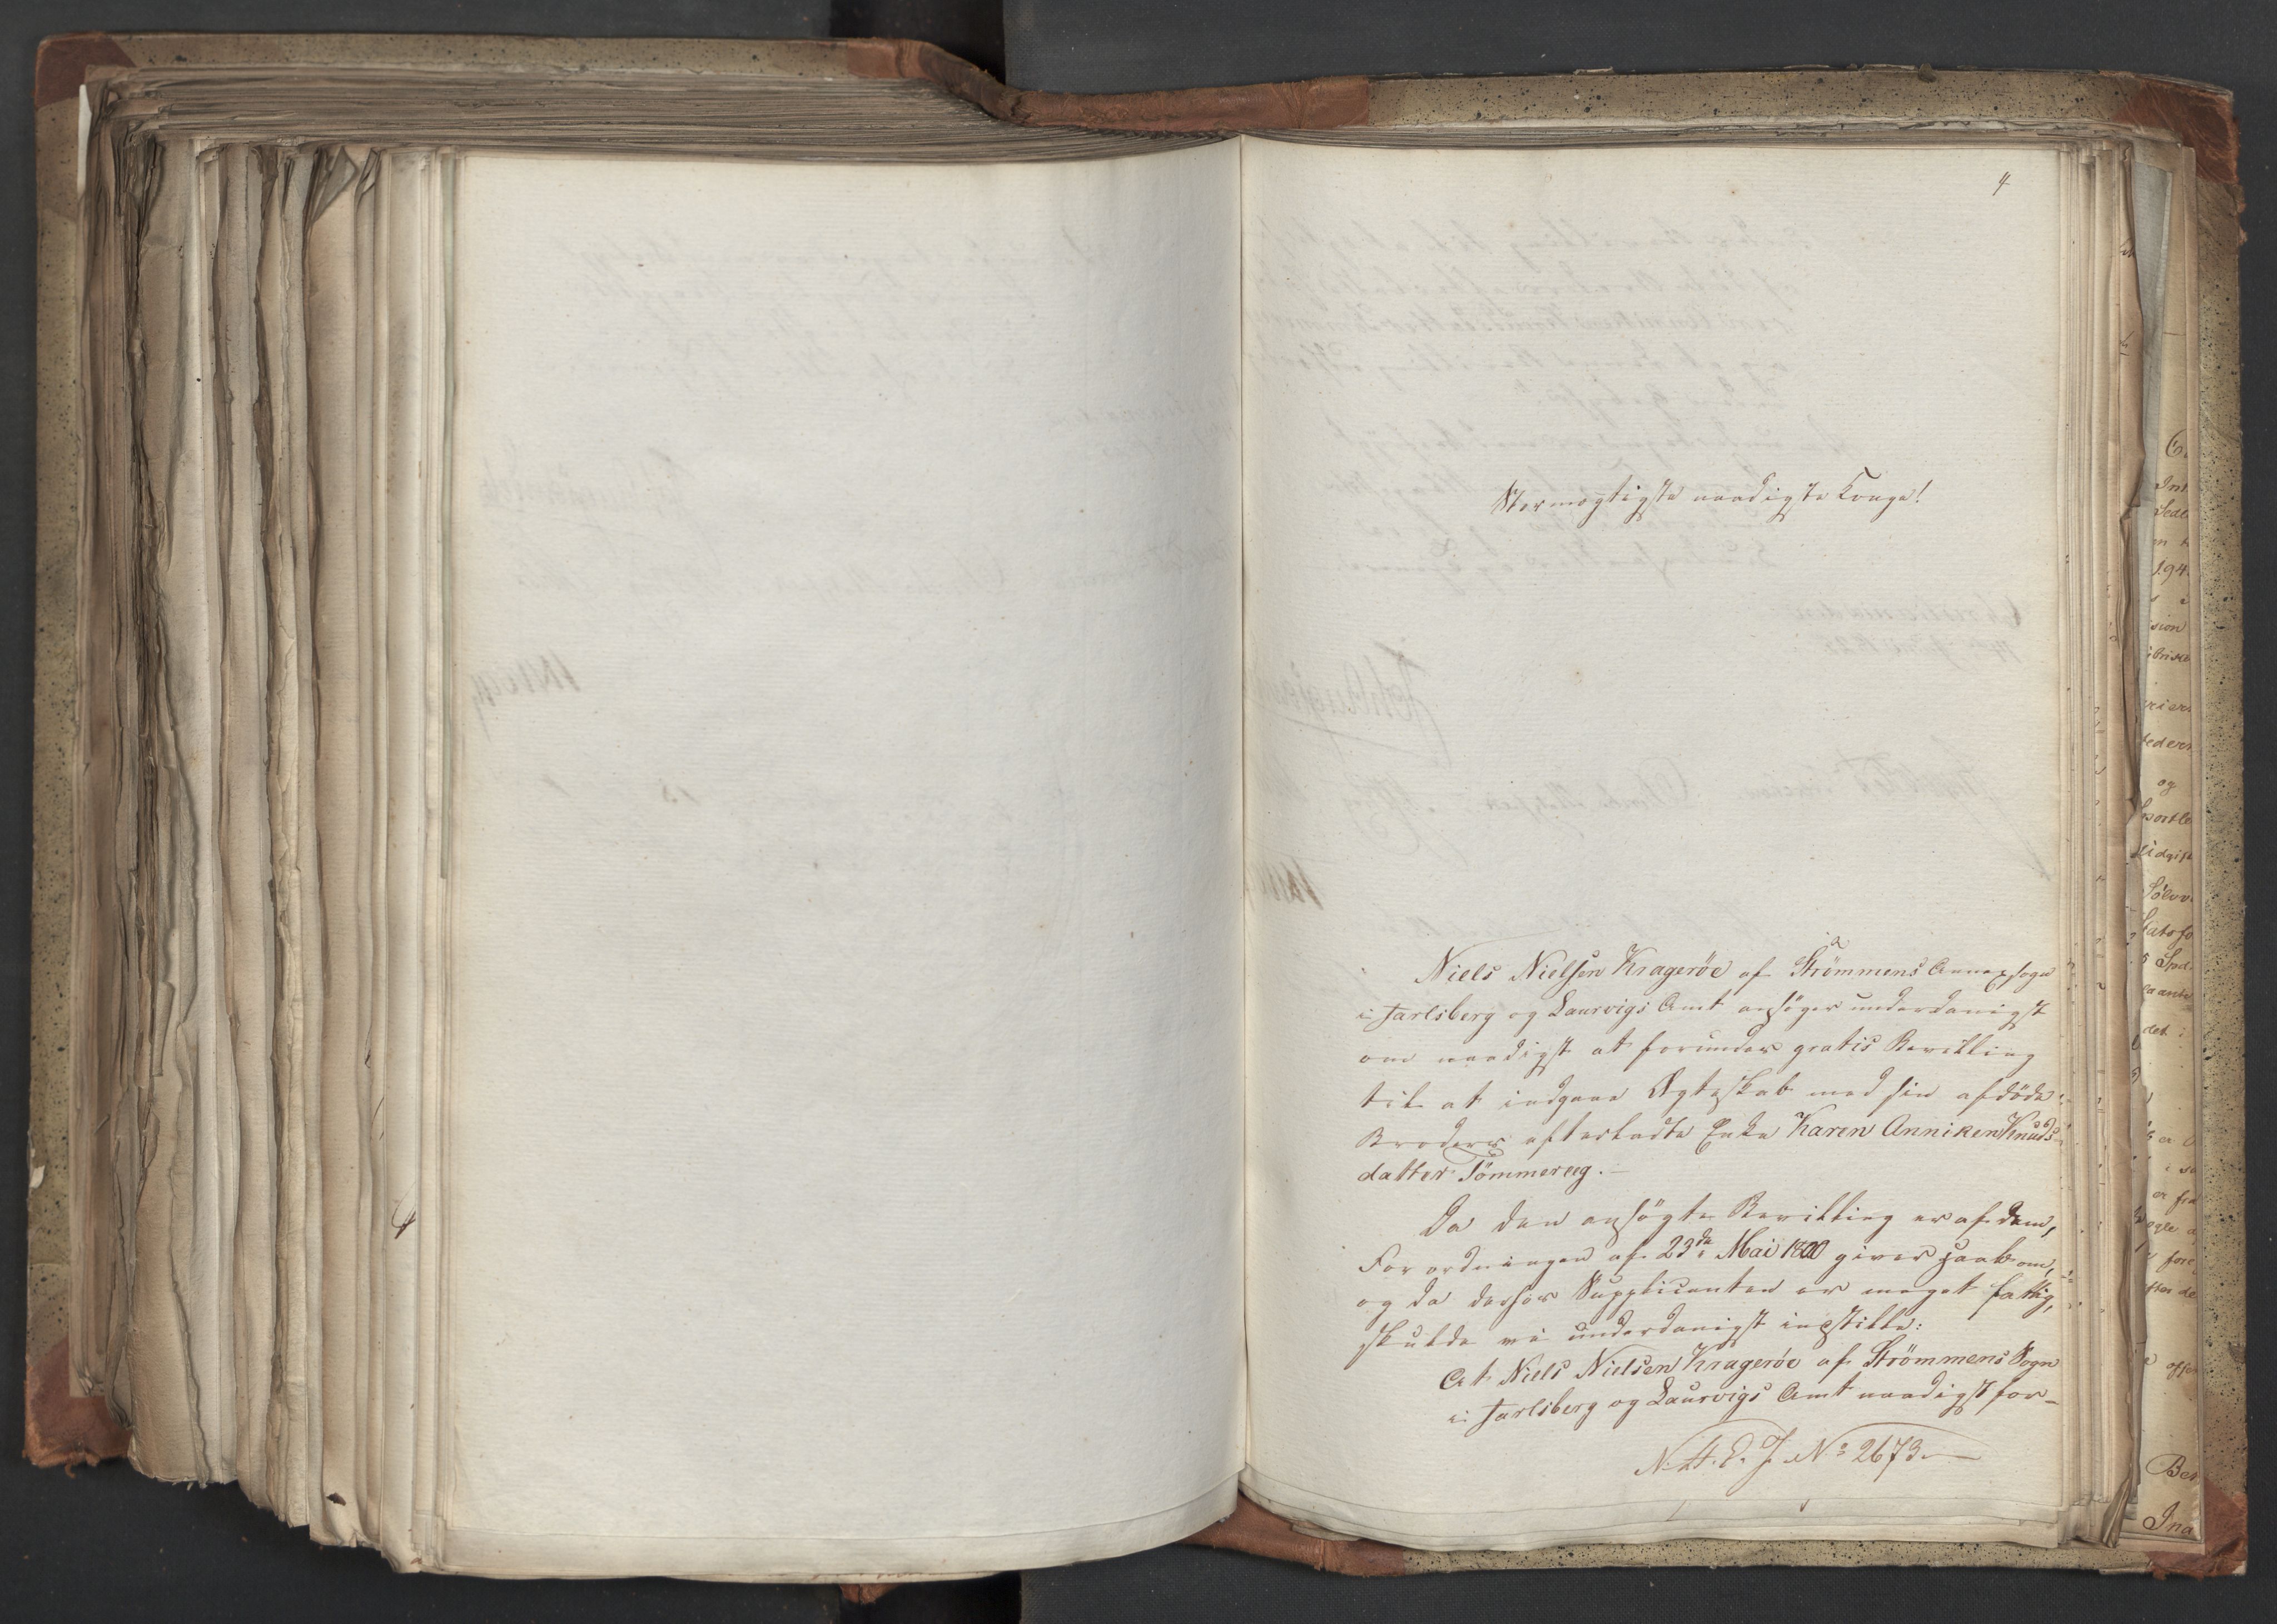 4
Stormægtigste naadigste Konge!
Niels Nielsen Kragerøe af Strömmens Annexsogn
i Jarlsberg og Laurvigs Amt ansöger underdanigst
om naadigst at forundes gratis Bevilling
til at indgaae Ægteskab med sin afdöde
Broders efterladte Enke Karen Anniken Knuds
datter Tömmereeg.
Da den ansögte Bevilling er af dem,
Forordningen af 23de Mai 1800 giver Haab om,
og da derhos Supplicanten er meget fattig,
skulde vi underdanigst indstille:
At Niels Nielsen Kragerøe af Strömmens Sogn
i Jarlsberg og Laurvigs Amt naadigst for-
No 2673